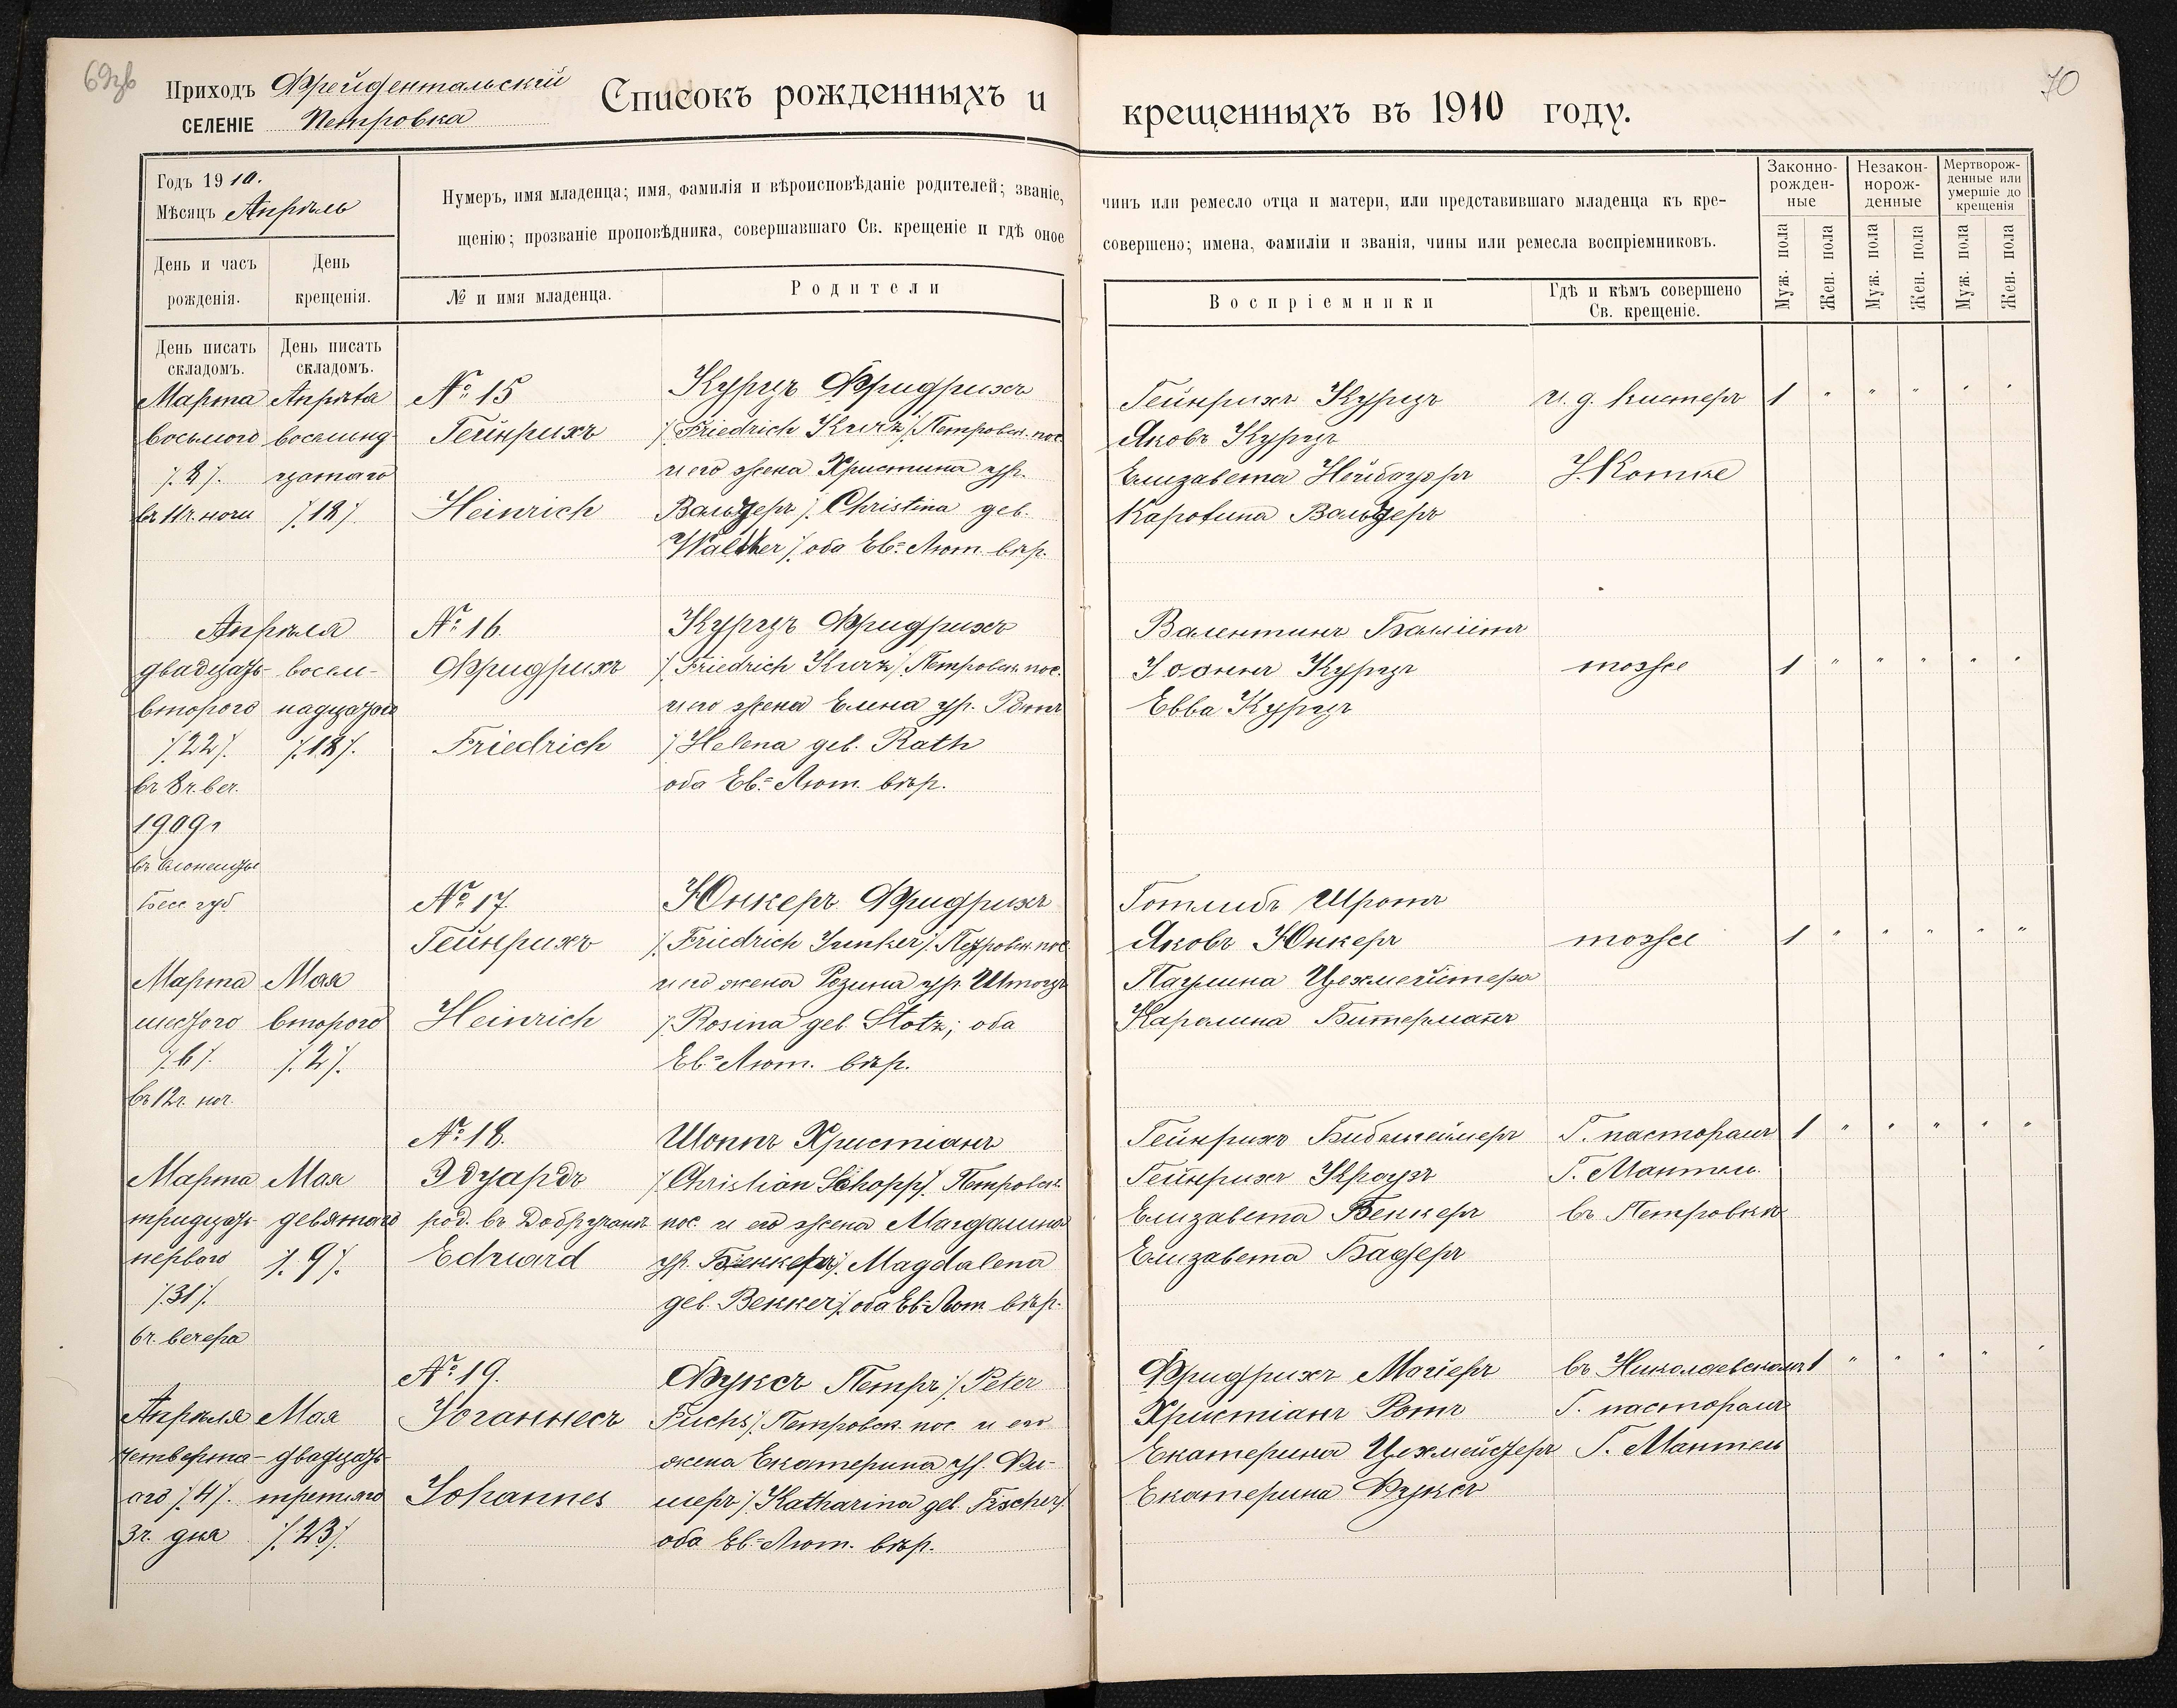 69об
70
Приходъ Фрейдентальскій
СЕЛЕНІЕ Петровка
Списокъ рожденныхъ и крещенныхъ въ 1910 году.
Годъ 1910.
Мѣсяцъ Апрѣль
День и часъ рожденія.
День крещенія.
Нумеръ, имя младенца; имя, фамилія и вѣроисповѣданіе родителей; званіе, чинъ или ремесло отца и матери, или представившаго младенца къ кре-
щенію; прозваніе проповѣдника, совершавшаго Св. крещеніе и гдѣ оное совершено; имена, фамиліи и званія, чины или ремесла воспріемниковъ.
№ и имя младенца.
Родители
Воспріемники
Гдѣ и кѣмъ совершено Св. крещеніе.
Законно-рожден-ные
Незакон-норож-денные
Мертворож-денные или умершіе до крещенія
Муж. пола
Жен. пола
Муж. пола
Жен. пола
Муж. пола
Жен. пола
День писать складомъ.
День писать складомъ.
Марта
восьмого
/.8/.
въ 11ч. ночи
Апрѣля
восемнд-
цатаго
/.18/.
№ 15
Гейнрихъ
Heinrich
Курцъ Фридрихъ
/.Friedrich Kurz/. Петровск. пос.
и его жена Христина ур.
Вальтеръ /. Christina geb.
Walther /. оба Ев.-Лют. вѣр.
Гейнрихъ Курцъ
Яковъ Курцъ
Елизавета Нейбауэръ
Каролина Вальтеръ
и. д. кистеръ
І. Котке
1 " " " " "
Апрѣля
двадцать-
второго
/.22/.
въ 8ч. веч.
1909г
Бесс. губ
восем-
надцатаго
/.18/.
№ 16.
Фридрихъ
Friedrich
Курцъ Фридрихъ
/.Friedrich Kurz/. Петровск. пос.
и его жена Елена ур. Ротъ
/.Helena geb. Rath
оба Ев.-Лют. вѣр.
Валентинъ
Іоаннъ Курцъ
Евва Курцъ
тоже
1 " " " " "
Марта
шестого
/.6/.
въ 12ч. ноч.
Мая
второго
/.2/.
№ 17.
Гейнрихъ
Heinrich
Юнкеръ Фридрихъ
/.Friedrich Junker/. Петровск. пос.
и его жена Розина ур. Штоцъ
/.Rosina geb. Stotz; оба
Ев.-Лют. вѣр.
Готлибъ
Яковъ Юнкеръ
Паулина Цехмейстеръ
Каролина Битерманъ
тоже
1 " " " " "
Марта
тридцать-
перваго
/.31/.
6ч. вечера
Мая
девятаго
/.9/.
№ 18.
Эдуардъ
род. въ Добручанъ
Eduard
Шоппъ Христіанъ
/.Christian Schopp/. Петровск.
пос. и его жена Магдалина
ур. Беккеръ/. Magdalena
geb. Bekker/. оба Ев.-Лют. вѣр.
Гейнрихъ Бибельгеймеръ
Гейнрихъ Краузъ
Елизавета Беккеръ
Елизавета Бадеръ
Г. пасторамъ
Г. Мантель
въ Петровкѣ
1 " " " " "
Апрѣля
четверта-
аго /.4/.
3ч. дня
Мая
двадцать-
третьяго
/.23/.
№ 19.
Іоганнесъ
Johannes
Фуксъ Петръ /.Peter
Fuchs/. Петровск. пос. и его
жена Екатерина ур. Фи-
шеръ /.Katharina geb. Fischer/.
оба Ев.-Лют. вѣр.
Фридрихъ Майеръ
Христіанъ Ротъ
Екатерина Цехмейстеръ
Екатерина Фуксъ
въ Николаевскомъ
Г. пасторамъ
Г. Мантель
1 " " " " "